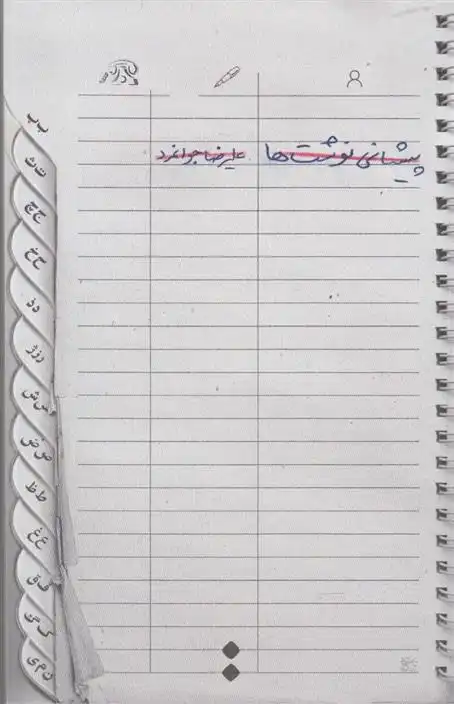 پیشانی نوشت‌ها علیرضا جوانمرد
ب پ
ت ث
ج چ
ح خ
د ذ
ر ز ژ
س ش
ص ض
ط ظ
ع غ
ف ق
ن م ی